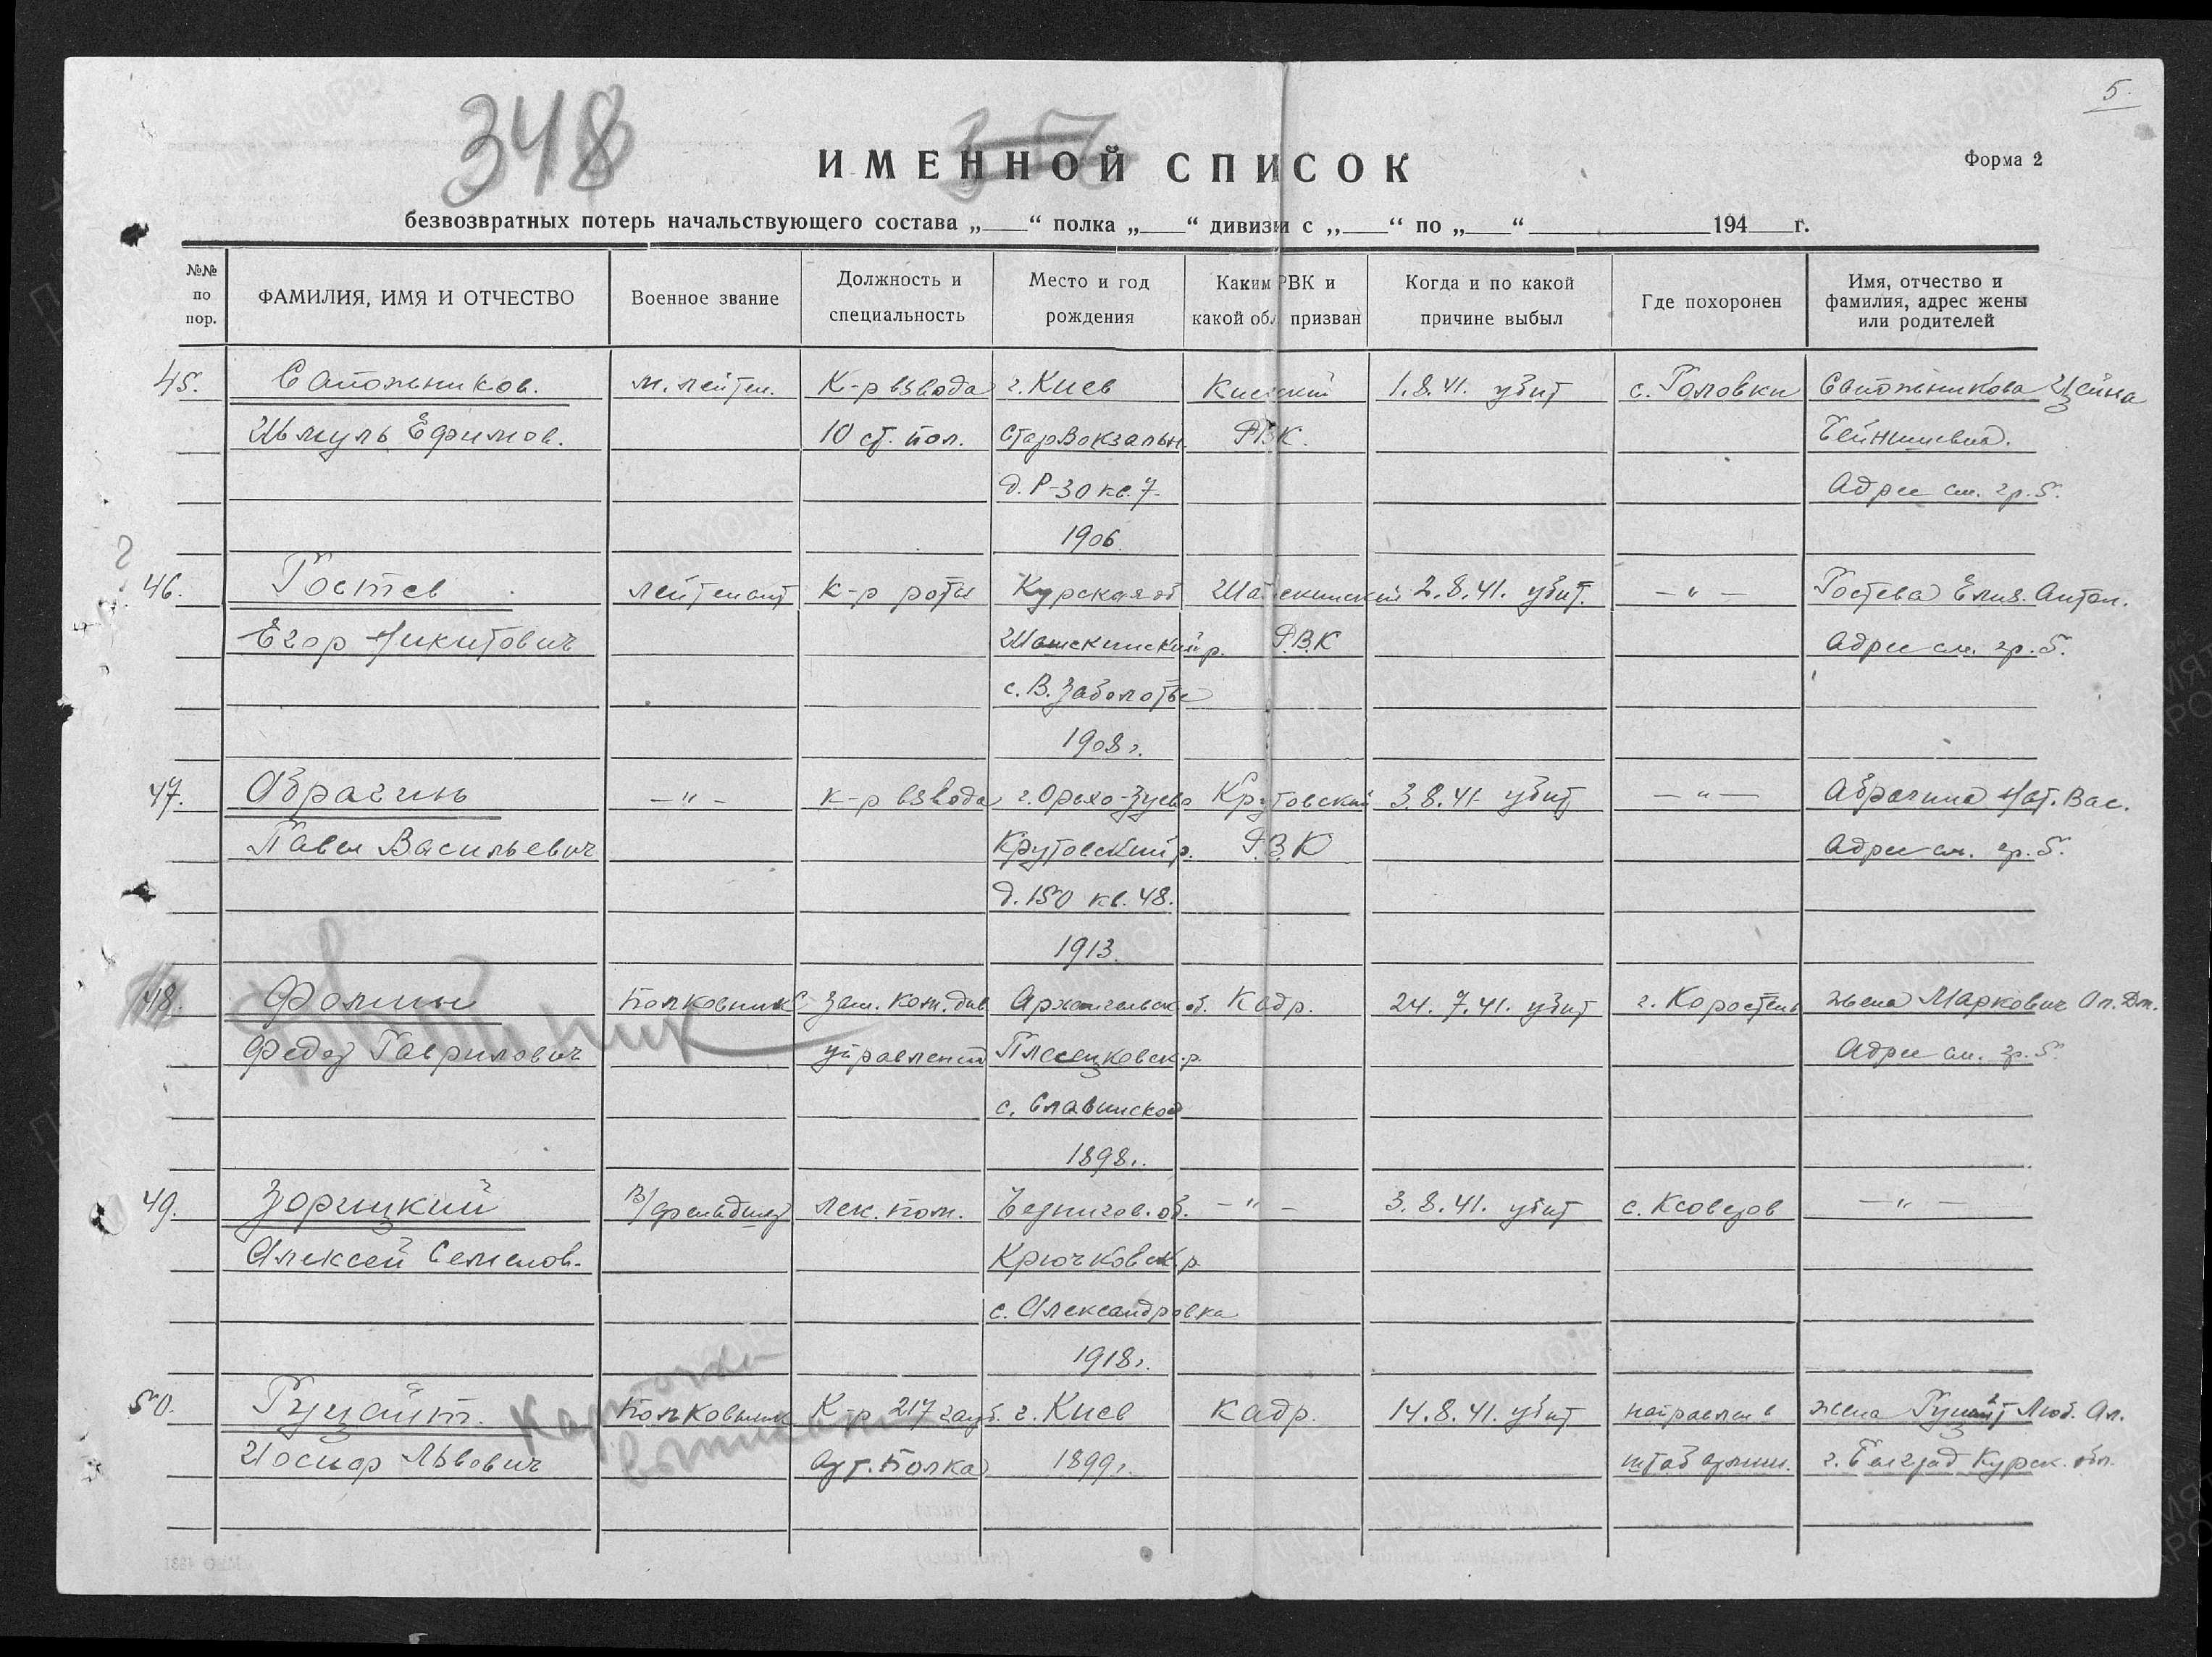 5.
348
ИМЕННОЙ СПИСОК
Форма 2
безвозвратных потерь начальствующего состава „___“ полка „___“ дивизии с „___“ по „___“ ______ 194__г.
№№ по пор.
ФАМИЛИЯ, ИМЯ И ОТЧЕСТВО
Военное звание
Должность и специальность
Место и год рождения
Каким РВК и какой обл. призван
Когда и по какой причине выбыл
Где похоронен
Имя, отчество и фамилия, адрес жены или родителей
45. Сапожников. м. лейтен. К-р взвода г. Киев Киевский 1.8.41. убит с. Головки Сапожникова
Шмуль Ефимов. 10 ст. пол. Старвокзальн. РВК.
д. Р-30 кв. 7. Адрес см. гр. 5.
1906
46. Гостев лейтенант К-р роты Курская об. 2.8.41. убит. —"— Гостева Елиз. Антон.
Егор Никитович р. Р.В.К Адрес см. гр. 5.
с. В. Заболотье
1908 г.
47. Абрагин —"— к-р взвода г. Орехо-Зуево Крутовский 3.8.41 убит —"— Абрагина Нат. Вас.
Павел Васильевич Крутовский р. Р.В.К Адрес см. гр. 5.
д. 150 кв. 48.
1913.
48. Фомин Полковник Зам. ком. див. Архангельск. об. Кадр. 24.7.41. убит г. Коростень жена Маркович Ол. Дм.
Федор Гаврилович управления Плесецковск. р. Адрес см. гр. 5.
с. Славинское
1898 г.
49. Зорицкий в/фельдшер лек. пом. Чернигов. об. —"— 3.8.41. убит —"—
Алексей Семенов. Крючковск. р.
с. Александровка
1918 г.
50. Гуцайт. Полковник К-р 217 гауб. г. Киев кадр. 14.8.41. убит направлен в жена Гуцайт Люб. Ал.
Иосиф Львович арт. Полка 1899 г. штаб армии. г. Белград Курск. обл.
Карточка
выписана